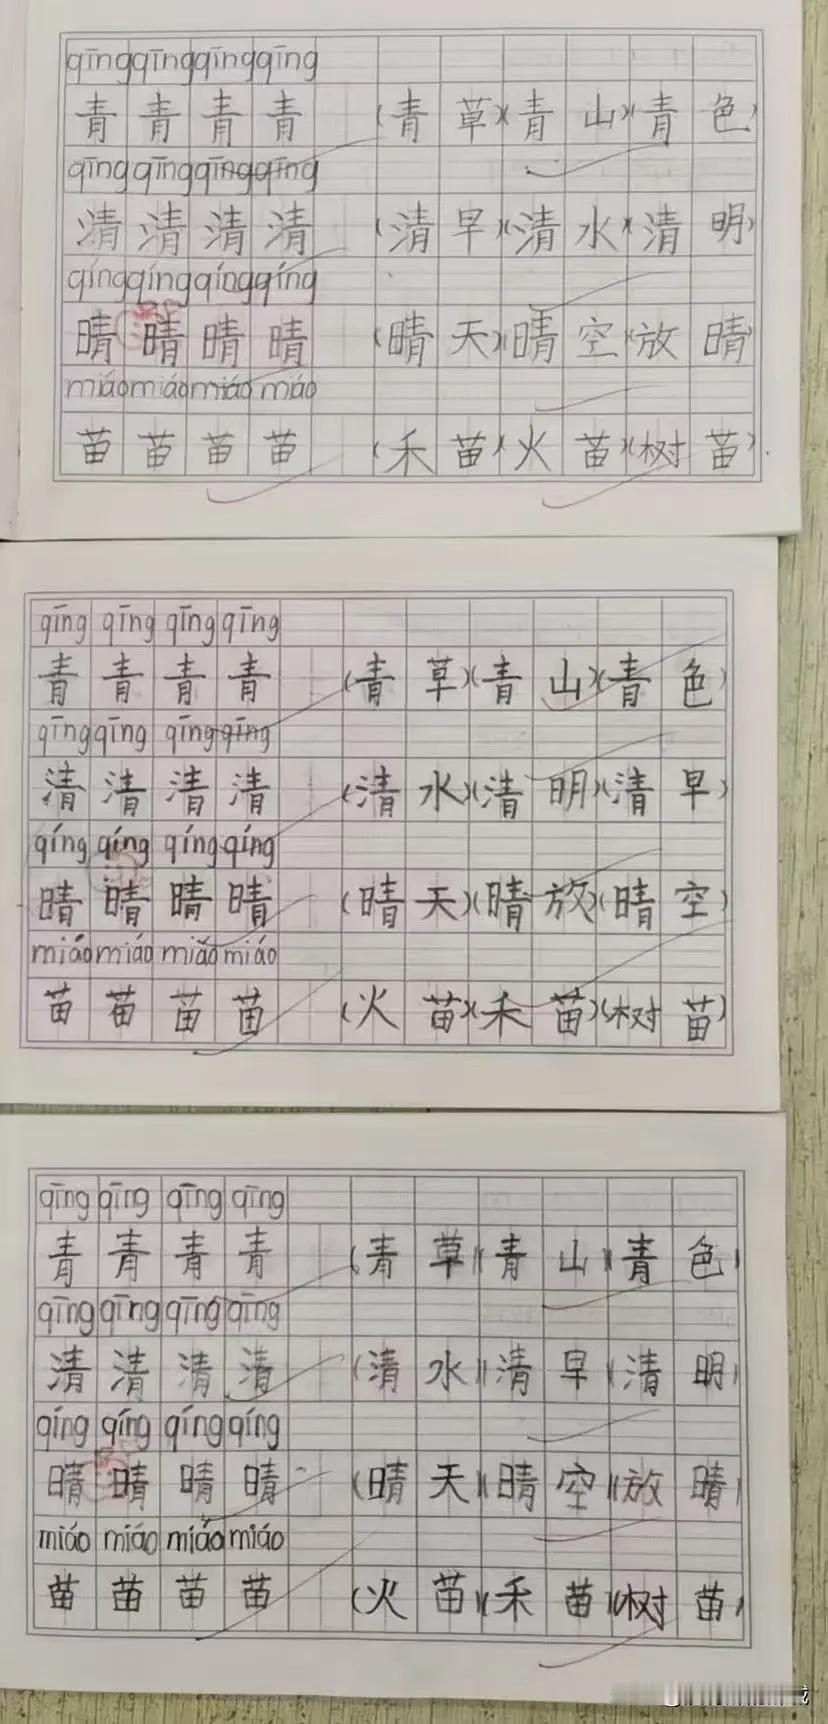 qīng qīng qīng qīng
青 青 青 青 (青 草)(青 山)(青 色)
qīng qīng qīng qīng
清 清 清 清 (清 早)(清 水)(清 明)
qíng qíng qíng qíng
晴 晴 晴 晴 (晴 天)(晴 空)(放 晴)
miáo miáo miáo máo
苗 苗 苗 苗 (禾 苗)(火 苗)(树 苗)
qīng qīng qīng qīng
青 青 青 青 (青 草)(青 山)(青 色)
qīng qīng qīng qīng
清 清 清 清 (清 水)(清 明)(清 早)
qíng qíng qíng qíng
晴 晴 晴 晴 (晴 天)(晴 放)(晴 空)
miáo miáo miáo miáo
苗 苗 苗 苗 (火 苗)(禾 苗)(树 苗)
qīng qīng qīng qīng
青 青 青 青 (青 草)(青 山)(青 色)
qīng qīng qīng qīng
清 清 清 清 (清 水)(清 早)(清 明)
qíng qíng qíng qíng
晴 晴 晴 晴 (晴 天)(晴 空)(放 晴)
miáo miáo miáo miáo
苗 苗 苗 苗 (火 苗)(禾 苗)(树 苗)